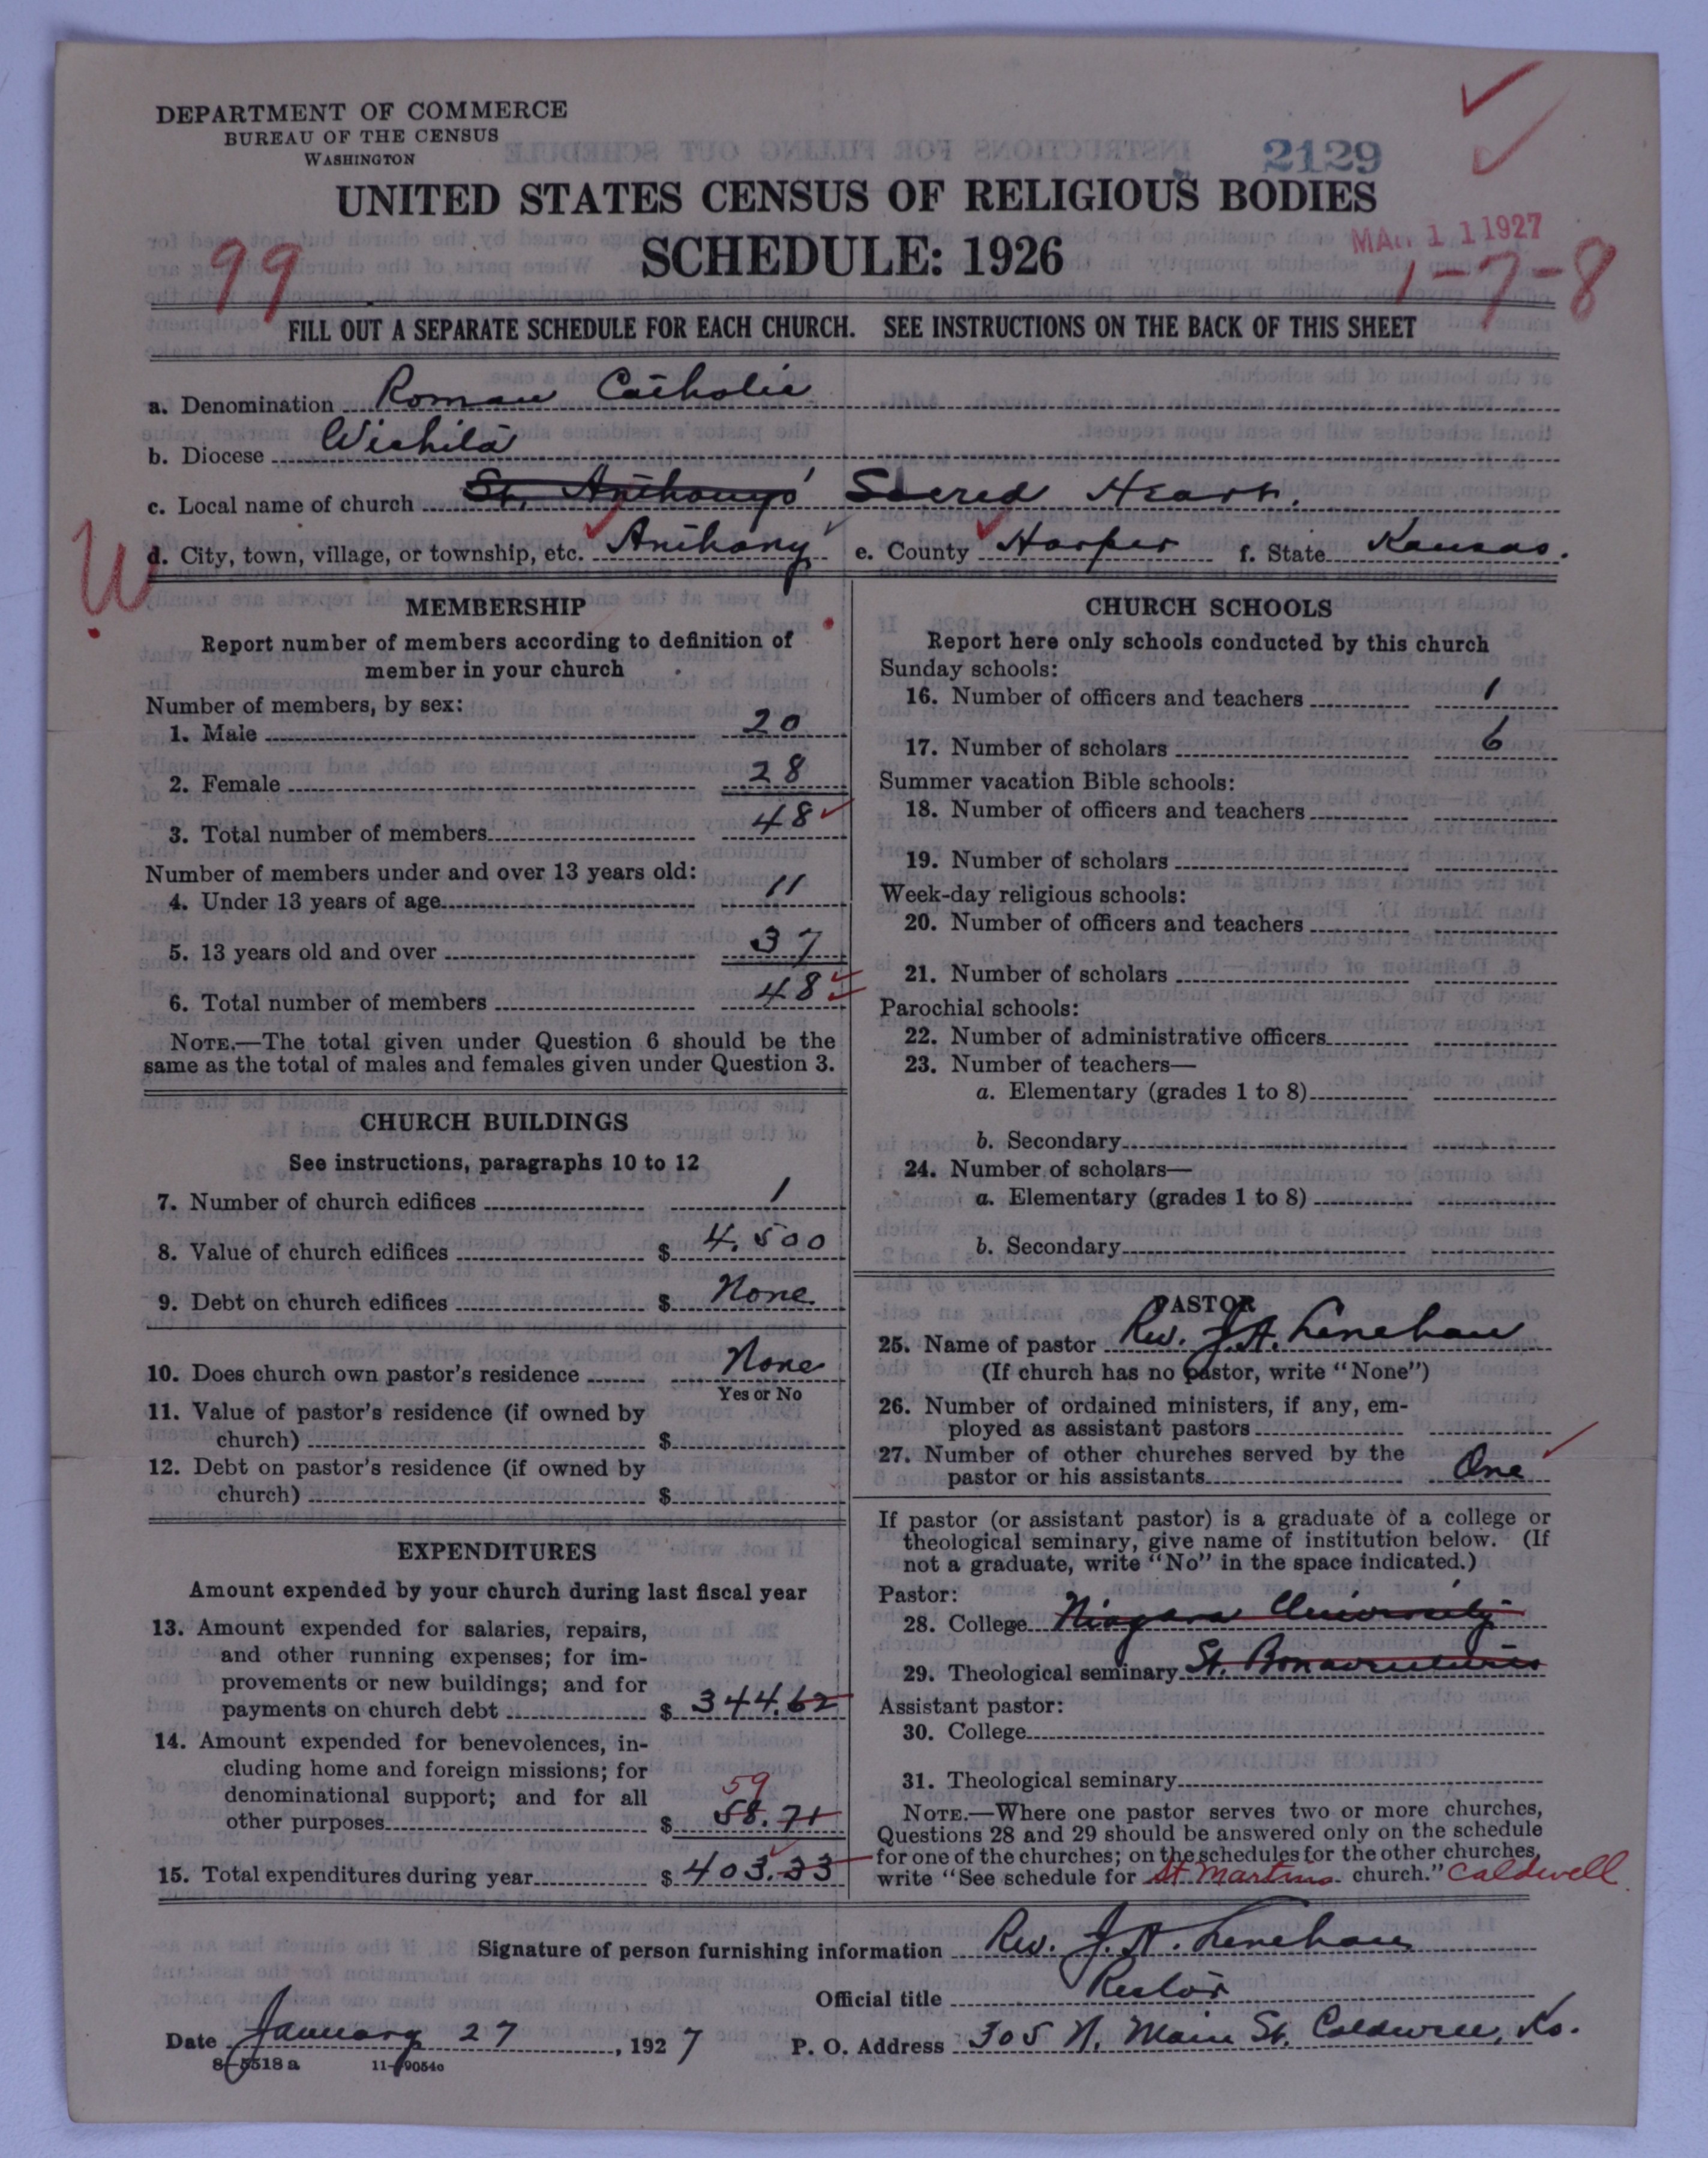 DEPARTMENT OF COMMERCE
BUREAU OF THE CENSUS
WASHINGTON
2129
UNITED STATES CENSUS OF RELIGIOUS BODIES
SCHEDULE: 1926
MAR 11 1927
99
1-7-8
FILL OUT A SEPARATE SCHEDULE FOR EACH CHURCH. SEE INSTRUCTIONS ON THE BACK OF THIS SHEET
a. Denomination Roman Catholic
b. Diocese Wichita
c. Local name of church St. Anthony's Sacred Heart.
W
d. City, town, village, or township, etc. Anthony e. County Harper f. State Kansas.
MEMBERSHIP
Report number of members according to definition of
member in your church
Number of members, by sex:
1. Male 20
2. Female 28
3. Total number of members 48
Number of members under and over 13 years old:
4. Under 13 years of age 11
5. 13 years old and over 37
6. Total number of members 48
NOTE.—The total given under Question 6 should be the
same as the total of males and females given under Question 3.
CHURCH BUILDINGS
See instructions, paragraphs 10 to 12
7. Number of church edifices 1
8. Value of church edifices $ 4.500
9. Debt on church edifices $ None.
10. Does church own pastor's residence None
Yes or No
11. Value of pastor's residence (if owned by
church) $
12. Debt on pastor's residence (if owned by
church) $
EXPENDITURES
Amount expended by your church during last fiscal year
13. Amount expended for salaries, repairs,
and other running expenses; for im-
provements or new buildings; and for
payments on church debt $ 344.62
14. Amount expended for benevolences, in-
cluding home and foreign missions; for
denominational support; and for all
59
other purposes $ 58.71
15. Total expenditures during year $ 403.33
CHURCH SCHOOLS
Report here only schools conducted by this church
Sunday schools:
16. Number of officers and teachers 1
17. Number of scholars 6
Summer vacation Bible schools:
18. Number of officers and teachers
19. Number of scholars
Week-day religious schools:
20. Number of officers and teachers
21. Number of scholars
Parochial schools:
22. Number of administrative officers
23. Number of teachers—
a. Elementary (grades 1 to 8)
b. Secondary
24. Number of scholars—
a. Elementary (grades 1 to 8)
b. Secondary
PASTOR
25. Name of pastor Rev. J.A. Lenehan
(If church has no pastor, write "None")
26. Number of ordained ministers, if any, em-
ployed as assistant pastors
27. Number of other churches served by the
pastor or his assistants One
If pastor (or assistant pastor) is a graduate of a college or
theological seminary, give name of institution below. (If
not a graduate, write "No" in the space indicated.)
Pastor:
28. College Niagara University
29. Theological seminary St. Bonaventures
Assistant pastor:
30. College
31. Theological seminary
NOTE.—Where one pastor serves two or more churches,
Questions 28 and 29 should be answered only on the schedule
for one of the churches; on the schedules for the other churches,
write "See schedule for St Martins church." Caldwell
Signature of person furnishing information Rev. J. A. Lenehan
Official title Rector
Date January 27, 1927 P. O. Address 305 N. Main St. Caldwell, Ks.
8-5518 a 11-9054o